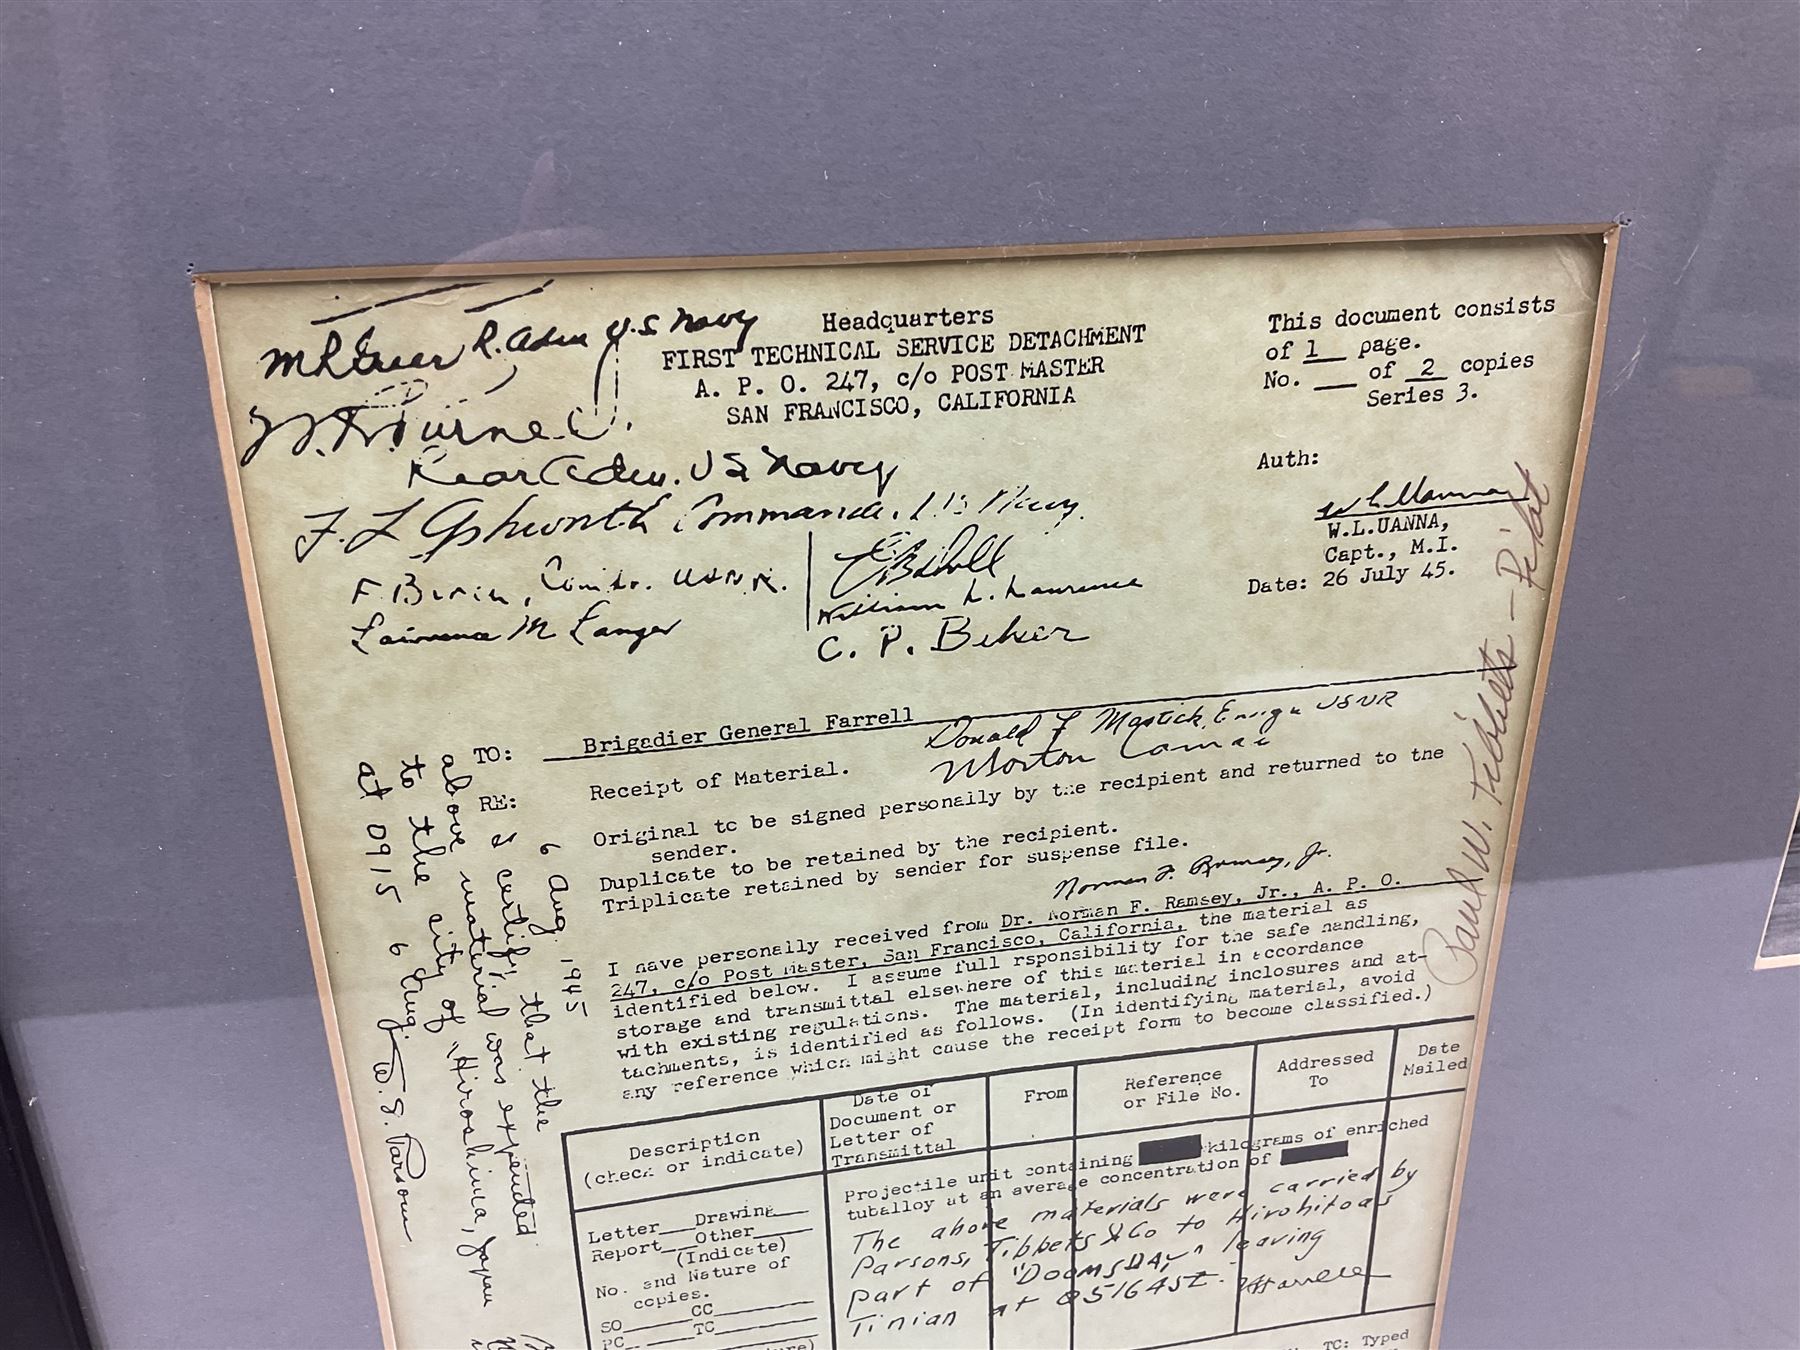 Headquarters
FIRST TECHNICAL SERVICE DETACHMENT
A. P. O. 247, c/o POST MASTER
SAN FRANCISCO, CALIFORNIA
This document consists
of 1 page.
No. ___ of 2 copies
Series 3.
Auth:
W.L.UANNA,
Capt., M.I.
Date: 26 July 45.
U.S. Navy
W. R. Purnell
Rear Adm. US Navy
F. L. Ashworth Commander, U.S. Navy
F Birch, Comdr. USNR.
Lawrence M Langer
William L. Laurence
C. P. Baker
Paul W. Tibbets - Pilot
TO: Brigadier General Farrell
Donald F Mastick, Ensign USNR
Morton Camac
RE: Receipt of Material.
Original to be signed personally by the recipient and returned to the
sender.
Duplicate to be retained by the recipient.
Triplicate retained by sender for suspense file.
Norman F. Ramsey, Jr.
I have personally received from Dr. Norman F. Ramsey, Jr., A. P. O.
247, c/o Post Master, San Francisco, California, the material as
identified below. I assume full rsponsibility for the safe handling,
storage and transmittal elsewhere of this material in accordance
with existing regulations. The material, including inclosures and at-
tachments, is identified as follows. (In identifying material, avoid
any reference which might cause the receipt form to become classified.)
6 Aug. 1945
I certify that the
above material was expended
to the city of "Hiroshima, Japan
at 0915 6 Aug. W. S. Parsons
Description
(check or indicate)
Date of
Document or
Letter of
Transmittal
From
Reference
or File No.
Addressed
To
Date
Mailed
Letter___Drawing___
Report___Other___
(Indicate)
No. and Nature of
copies.
CC___
SO___
PC___TC___
Projectile unit containing kilograms of enriched
tuballoy at an average concentration of
The above materials were carried by
Parsons, Tibbets & Co to Hirohitoas
part of "Doomsday" leaving
Tinian at 051645Z.
TC: Typed